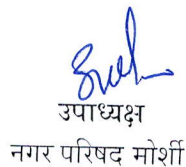 उपाध्यक्ष
नगर परिषद मोर्शी